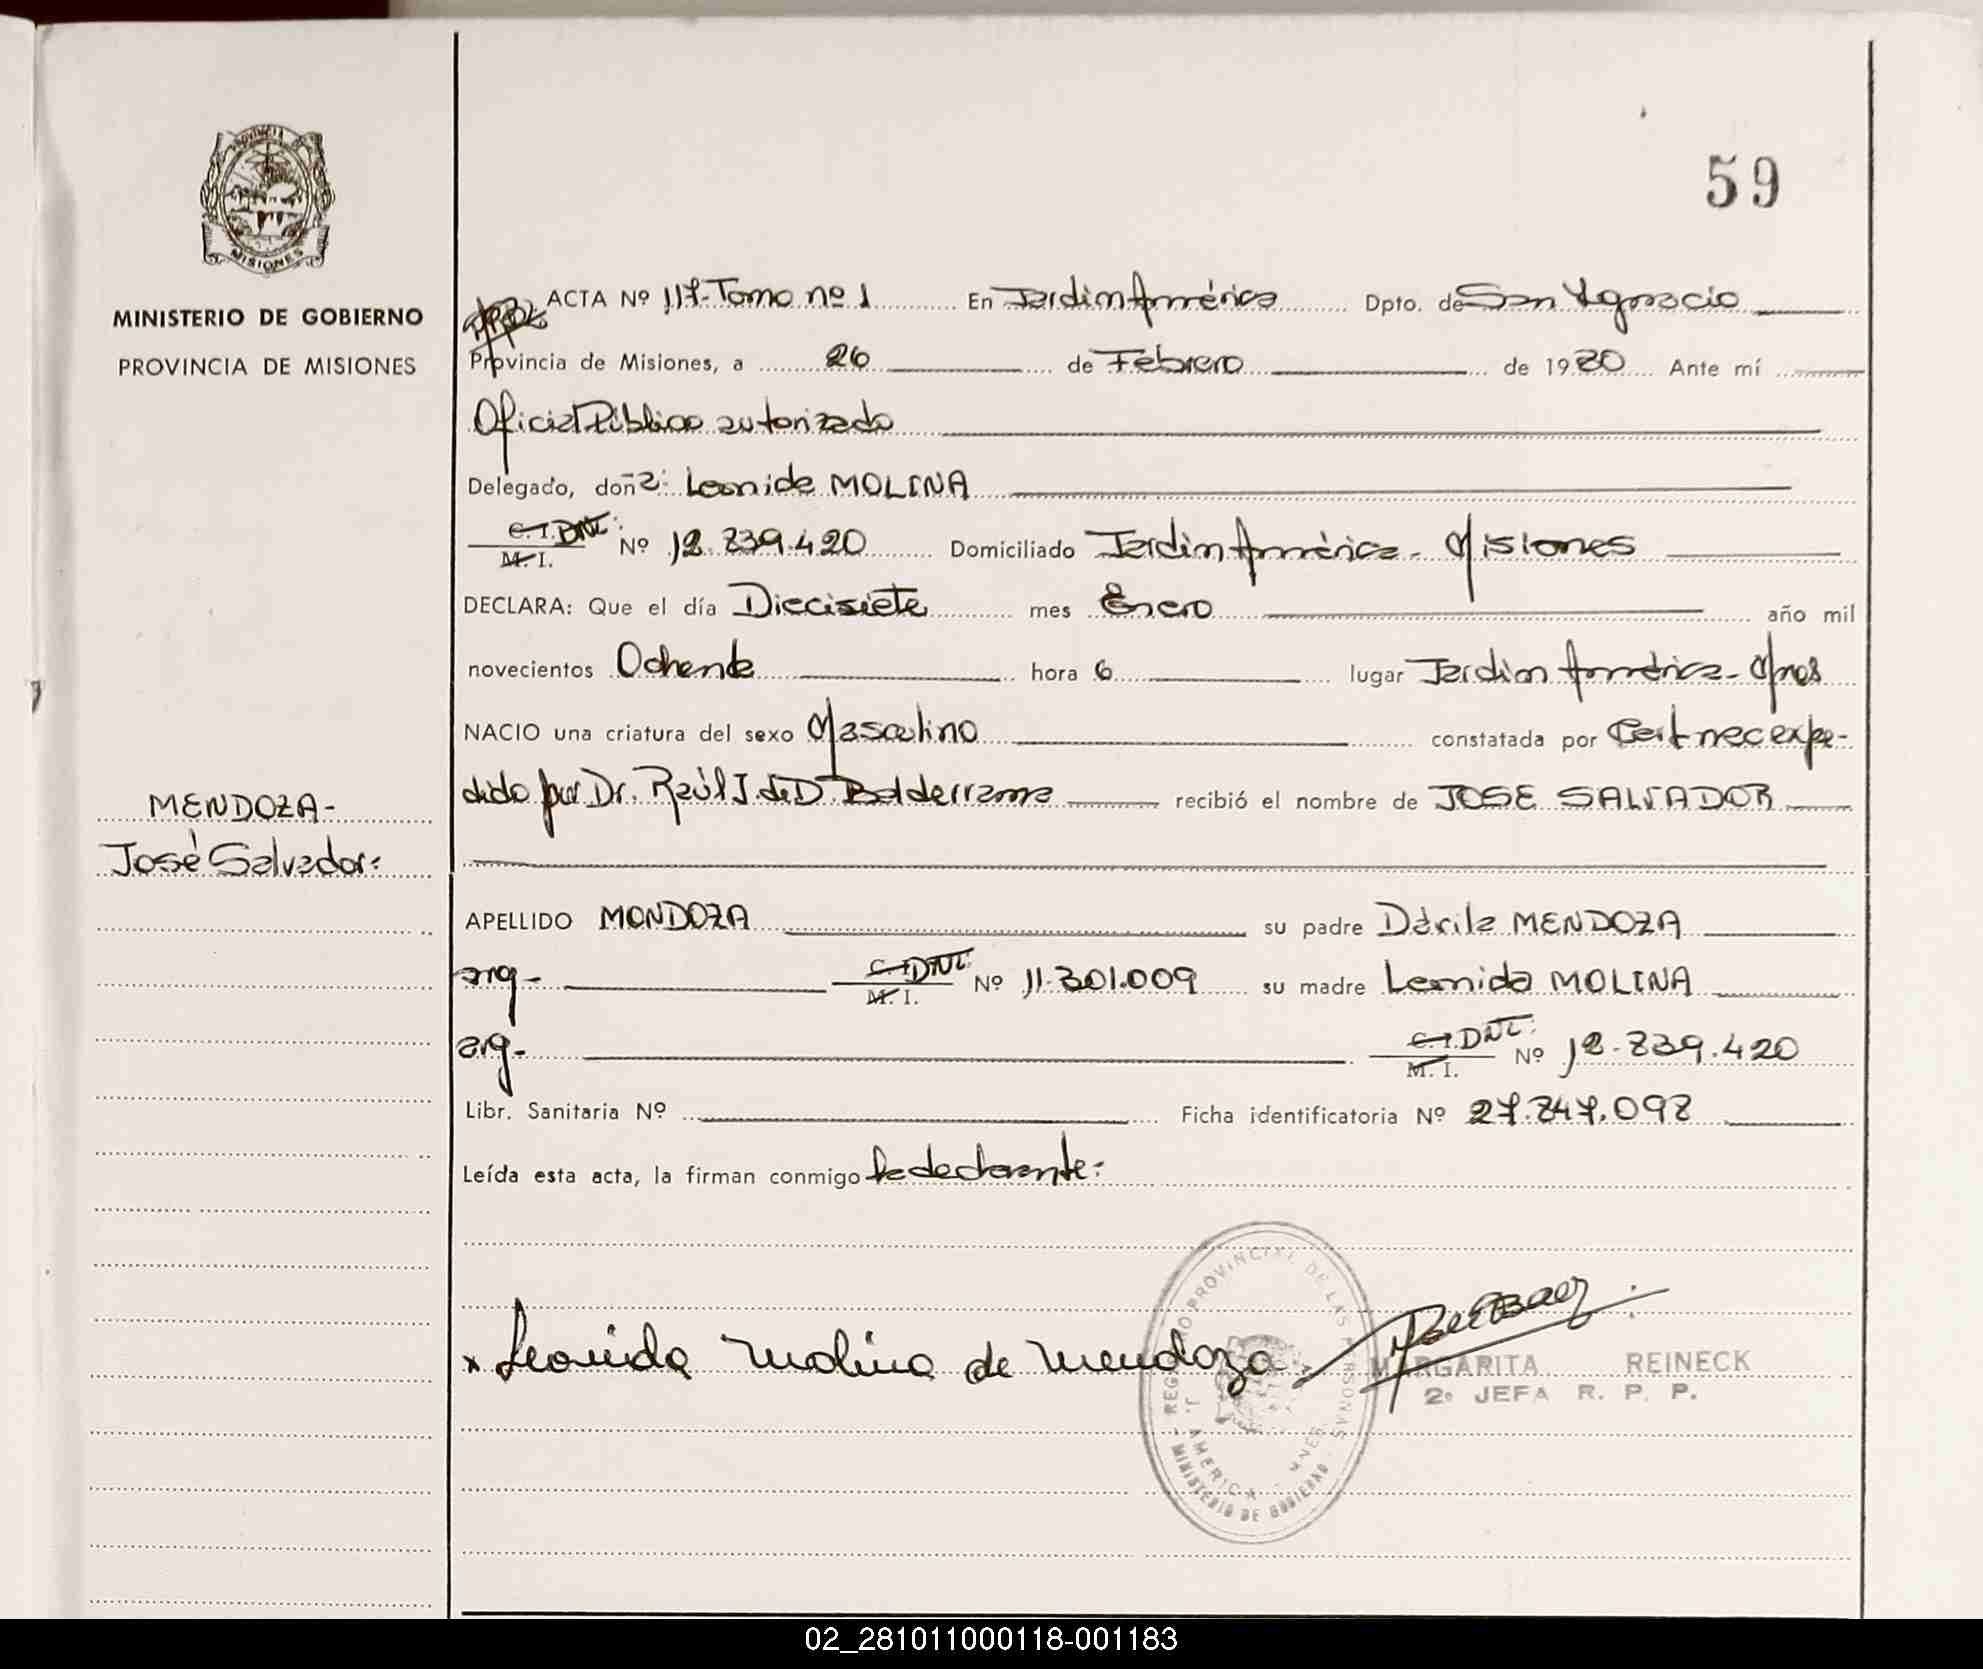 59
PROVINCIA DE
MISIONES
MINISTERIO DE GOBIERNO
PROVINCIA DE MISIONES
MENDOZA-
José Salvador:
ACTA Nº 117-Tomo nº 1 En Jardín América Dpto. de San Ygnacio
Provincia de Misiones, a 26 de Febrero de 1980 Ante mí
Oficial Público autorizado
Delegado, doña: Leonida MOLINA
C.I. DNI: M.I. Nº 12.839.420 Domiciliado Jardín América - Misiones
DECLARA: Que el día Diecisiete mes Enero año mil
novecientos Ochenta hora 6 lugar Jardín América - Mnes
NACIO una criatura del sexo Masculino constatada por Cert nec expe-
dido por Dr. Raúl J. de D. Balderrama recibió el nombre de JOSE SALVADOR
APELLIDO MONDOZA su padre Dárila MENDOZA
arg- C.I. DNI: M.I. Nº 11.301.009 su madre Leonida MOLINA
arg- C.I. DNI: M.I. Nº 12.839.420
Libr. Sanitaria Nº Ficha identificatoria Nº 27.847.098
Leída esta acta, la firman conmigo la declarante:
x Leonida Molina de Mendoza
REGISTRO PROVINCIAL DE LAS PERSONAS
J. AMERICA - MNES.
- MINISTERIO DE GOBIERNO -
MARGARITA REINECK
2º JEFA R. P. P.
02_281011000118-001183